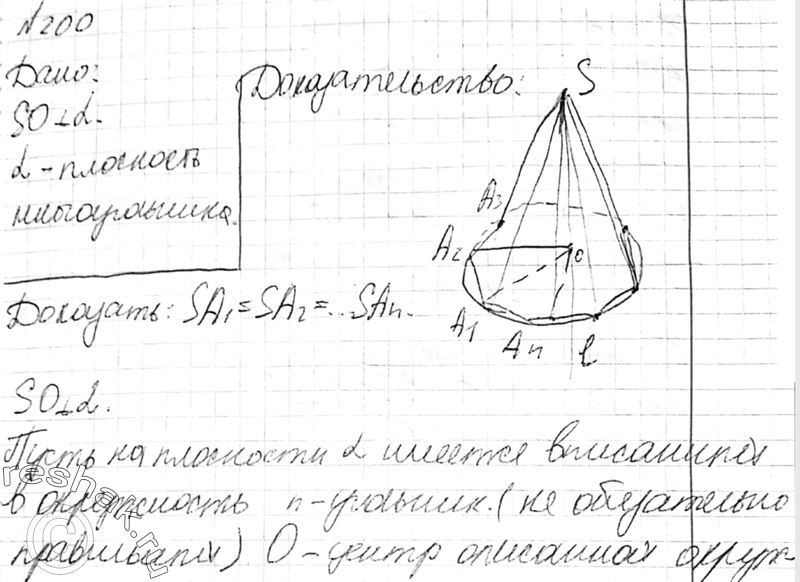 N200
Дано:
SO⊥α.
α - плоскость
многоугольника.
Доказательство:
S
A3
A2
O
A1
An
l
Доказать: SA1=SA2=...SAn.
SO⊥α.
Пусть на плоскости α имеется вписанный
в окружность n-угольник. (не обязательно
правильный) O - центр описанной окруж-
reshak.ru